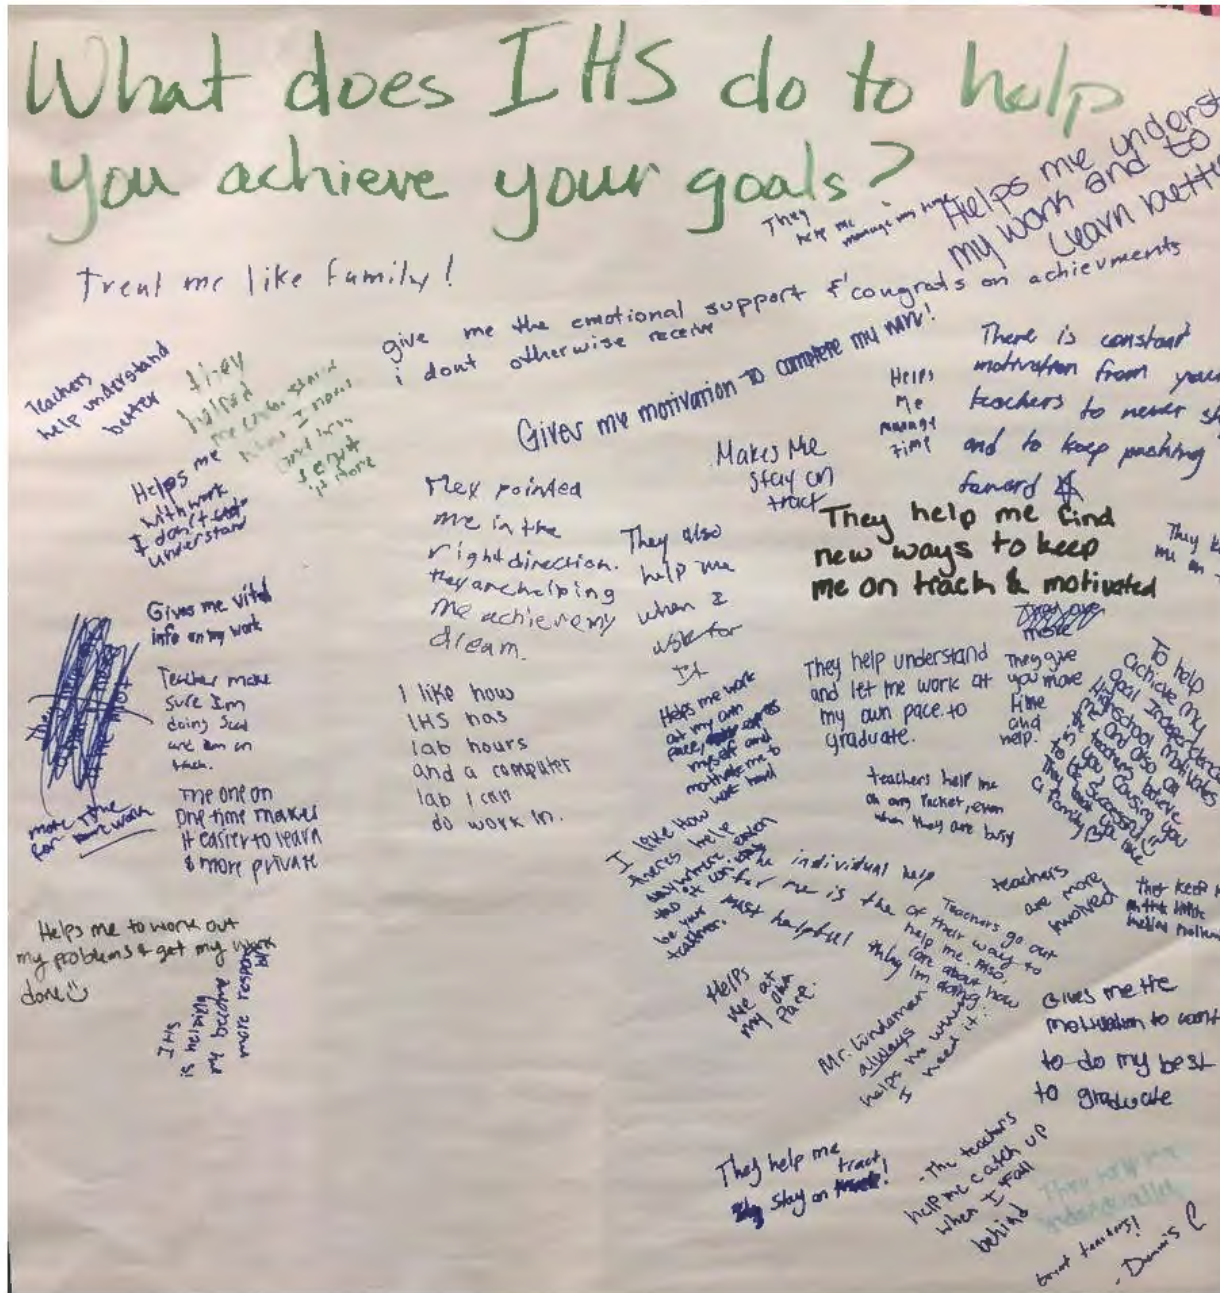 What does IHS do to help
you achieve your goals?
They
help me
manage my time
Helps me underst
my work and to
Learn bette
Treat me like family!
give me the emotional support & congrats on achievments
i dont otherwise receive
Teachers
help understand
better
they
helped
me
Gives me motivation to complete my work!
Helps
Me
manage
time
There is constant
motivation from your
teachers to never
and to keep pushing
foward
Helps me
with work
I don't
understand
Makes Me
stay on
tract
They pointed
me in the
right direction.
they are helping
me achieve my
dream.
They also
help me
when I
ask for
It
They help me find
new ways to keep
me on track & motivated
They
me on
Gives me vital
info on my work
Teacher make
sure I'm
doing
and am on
track.
The one on
One time makes
it easier to learn
& more private
more time
for work
I like how
IHS has
lab hours
and a computer
lab I can
do work in.
Helps me work
at my own
pace, express
myself and
motivate me to
work hard
They help understand
and let me work at
my own pace to
graduate.
They give
you more
time
and
help.
To help
achieve my
goal Independence
Highschool motivates
me and also all
the teachers believe
in you causing you
to be successful
They treat you like
a family
teachers help me
on any packet, even
when they are busy
I like how
theres help
be your
teacher.
The individual help
for me is the
most helpful thing
teachers
are more
involved
They keep
Teachers go out
of their way to
help me. Also,
care about how
I'm doing.
Helps me to work out
my problems & get my work
done
IHS
is helping
my become
more respon
Helps
me at
my own
Pace.
Mr. Lindeman
always
helps me when
I need it!
Gives me the
motivation to want
to do my best
to graduate
They help me
stay on tract!
-The teachers
help me catch up
when I fall
behind
They help me
individually
great teachers!
- Dennis C